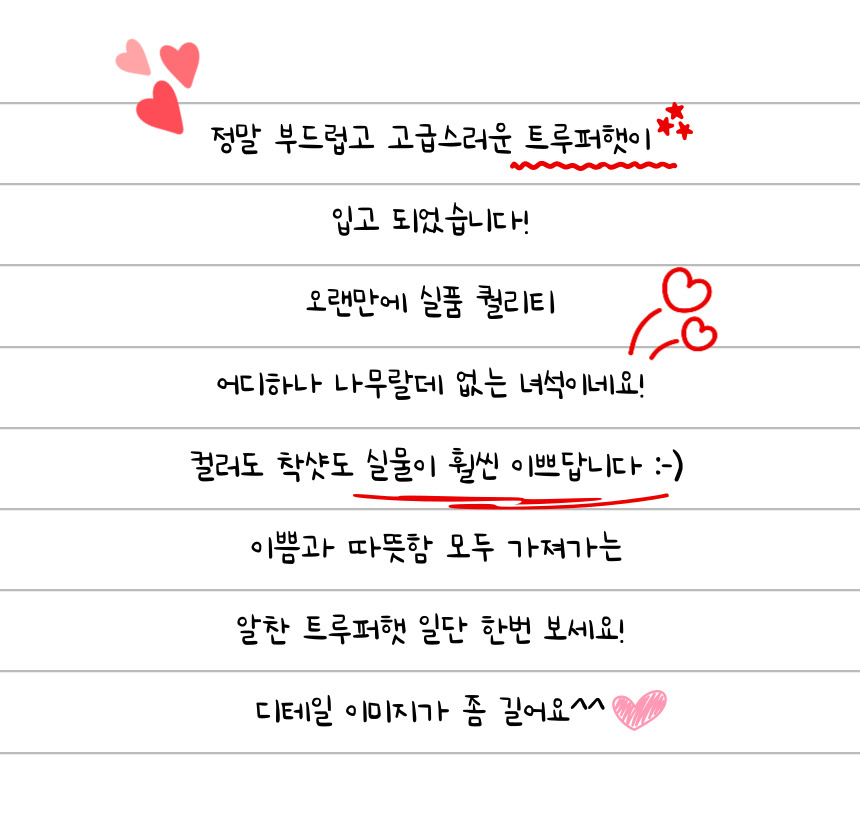 정말 부드럽고 고급스러운 트루퍼햇이
입고 되었습니다!
오랜만에 실품 퀄리티
어디하나 나무랄데 없는 녀석이네요!
컬러도 착샷도 실물이 훨씬 이쁘답니다 :-)
이쁨과 따뜻함 모두 가져가는
알찬 트루퍼햇 일단 한번 보세요!
디테일 이미지가 좀 길어요^^